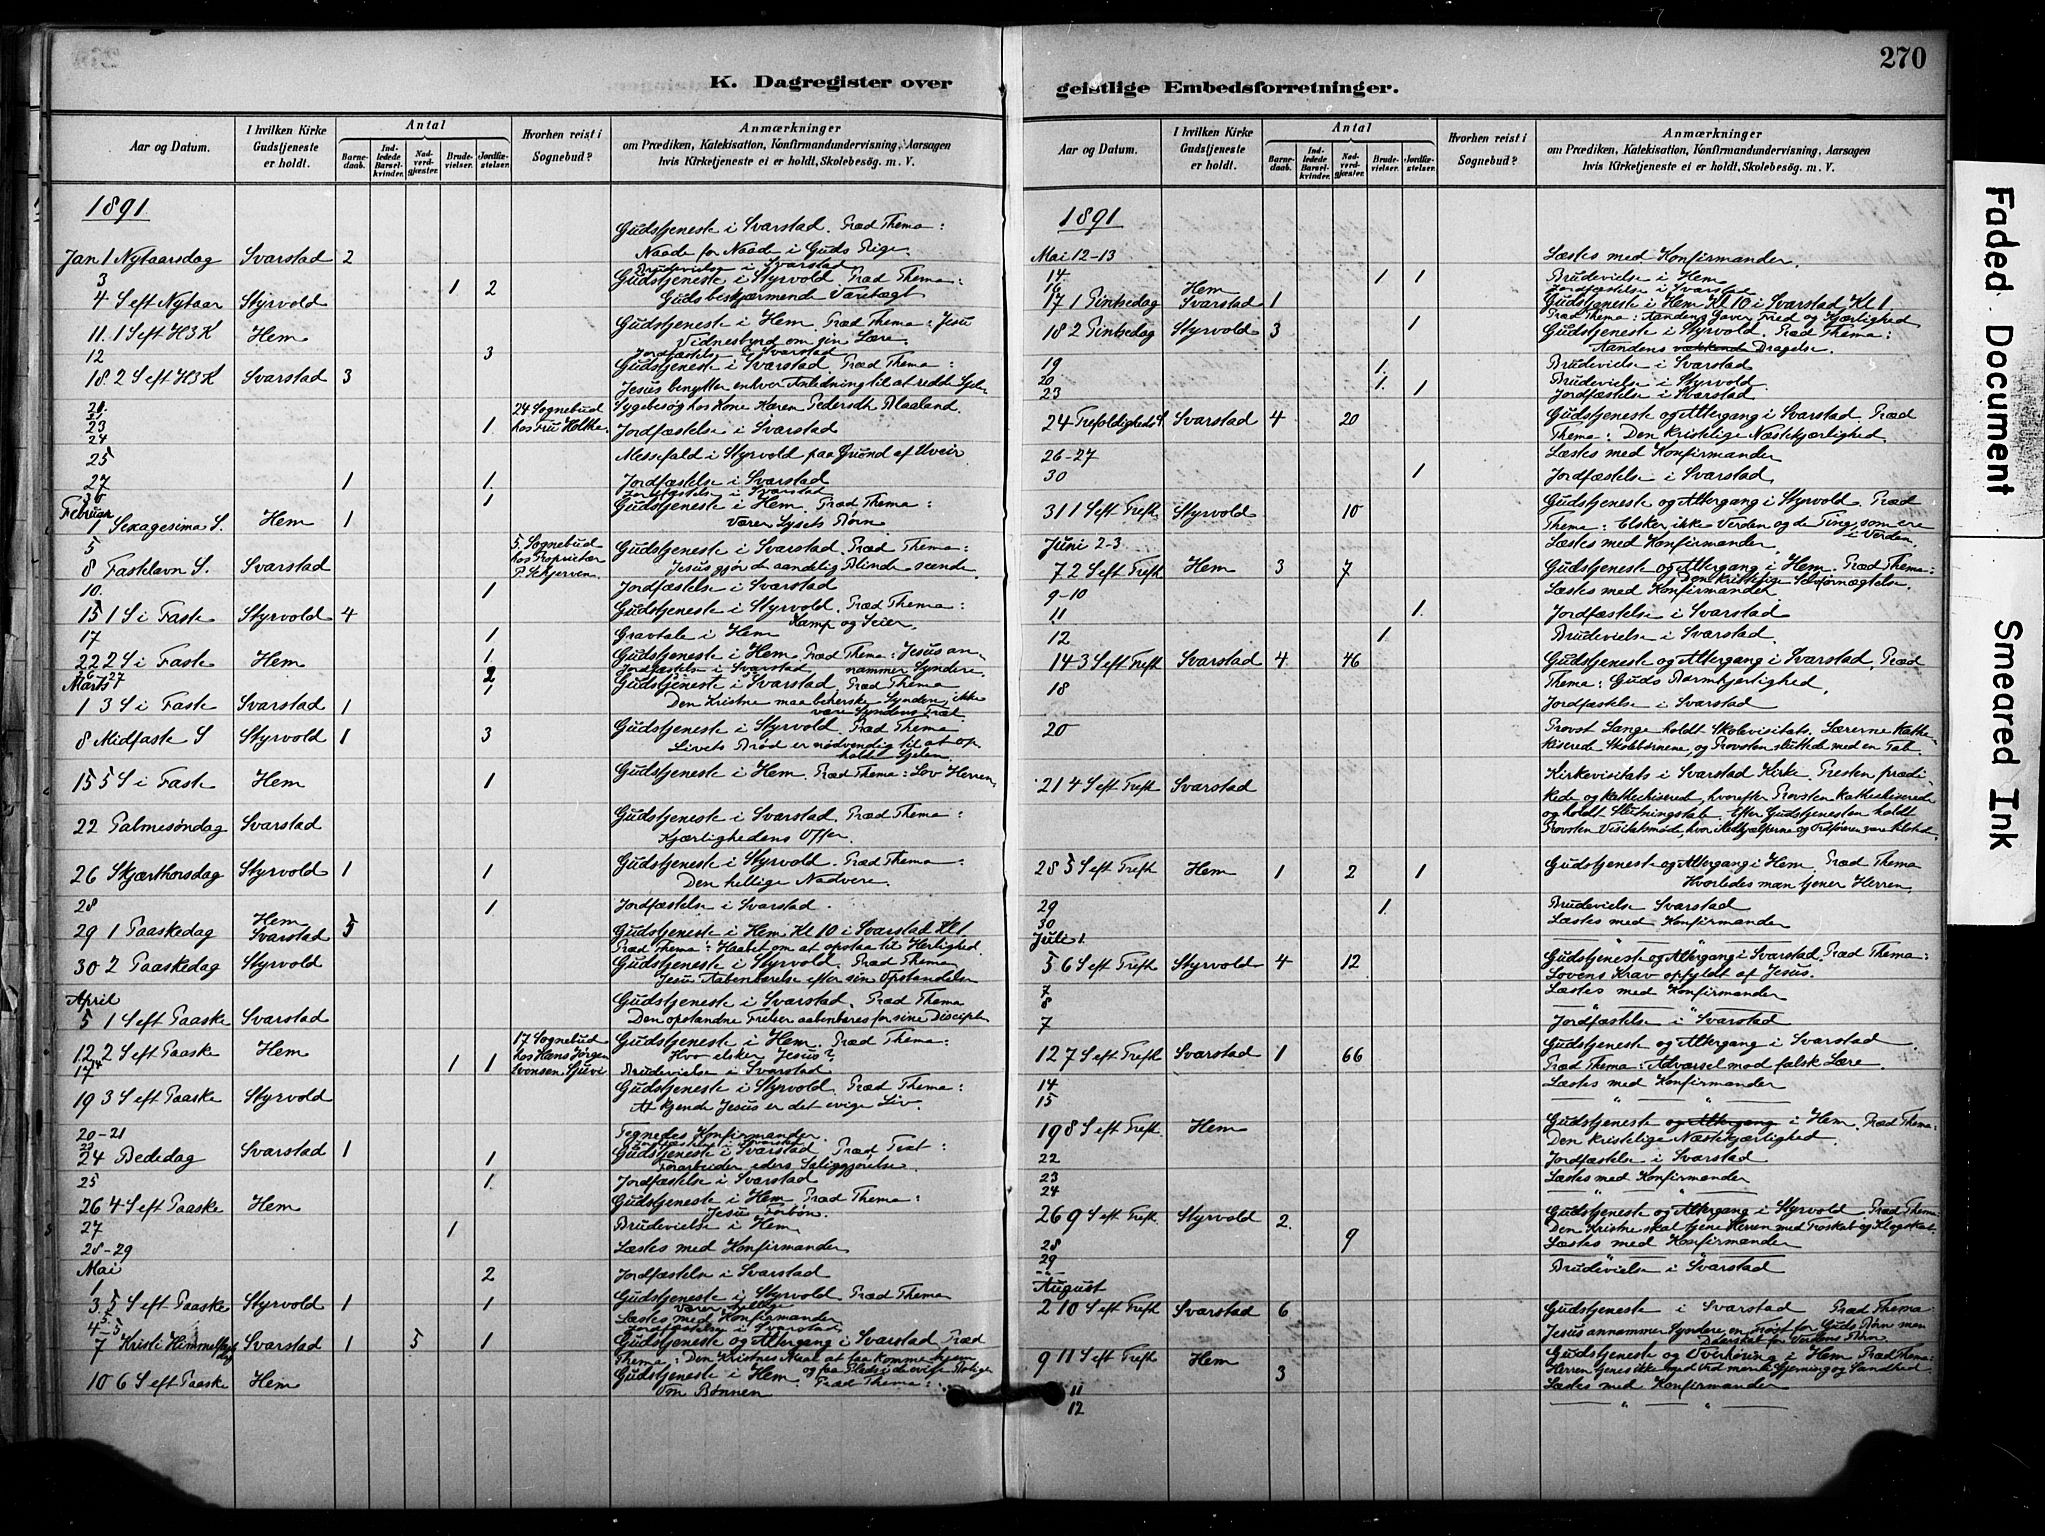 270
K. Dagregister over geistlige Embedsforretninger.
Aar og Datum. I hvilken Kirke Gudstjeneste er holdt. Antal Barnedaab. Indledede Barselkvinder. Nadverdgjæster. Brudevielser. Jordfæstelser. Hvorhen reist i Sognebud? Anmærkninger om Prædiken, Katekisation, Konfirmandundervisning, Aarsagen hvis Kirketjeneste ei er holdt, Skolebesøg. m. V.
1891
Gudstjeneste i Svarstad. Præd Thema:
Jan 1 Nytaarsdag Svarstad 2 Naade for Naade i Guds Rige.
3 Brudevielse i Svarstad
1 2 Gudstjeneste i Styrvold. Præd Thema:
4 S eft Nytaar Styrvold Guds beskjærmende Varetægt
11. 1 S eft H3K Hem Gudstjeneste i Hem. Præd Thema: Jesu
Vidnesbyrd om sin Lære.
12 3 Jordfæstelse i Svarstad
Gudstjeneste i Svarstad. Præd Thema:
18 2 S eft H3K Svarstad 3 Jesus benytter enhver Anledning til at redde Sjele
24 Sognebud Sygebesøg hos Kone Karen Pedersdtr Blaaland.
23 1 hos Fru Holthe. Jordfæstelse i Svarstad
24
25 Messefald i Styrvold paa Grund af Uveir
27 1 1 Jordfæstelse i Svarstad
30 1 Jordfæstelse i Svarstad
Februar Gudstjeneste i Hem. Præd Thema:
1 Sexagesima S. Hem 1 Værer Lysets Børn
5 5. Sognebud Gudstjeneste i Svarstad. Præd Thema:
8 Fastelavn S. Svarstad hos Proprietær Jesus gjør de aandelig Blinde seende.
10. 1 Jordfæstelse i Svarstad
15 1 S i Faste Styrvold 4 Gudstjeneste i Styrvold. Præd Thema:
Kamp og Seier.
17 1 Gravtale i Hem
22 2 S i Faste Hem 1 Gudstjeneste i Hem Præd Thema: Jesus an-
Jordfæstelse i Svarstad nammer Syndere.
Marts 2
1 Gudstjeneste i Svarstad. Præd Thema
1 3 S i Faste Svarstad 1 Den Kristne maa beherske Synden, ikke
være Syndens Træl.
8 Midfaste S Styrvold 1 3 Gudstjeneste i Styrvold. Præd Thema
Livets Brød er nødvendig til at op-
holde Sjelen
15 5 S i Faste Hem 1 Gudstjeneste i Hem. Præd Thema: Lov Herren
22 Palmesøndag Svarstad Gudstjeneste i Svarstad. Præd Thema:
Kjærlighedens Offer.
26 Skjærthorsdag Styrvold 1 1 Gudstjeneste i Styrvold. Præd Thema:
Den hellige Nadvere.
28 1 Jordfæstelse i Svarstad.
29 1 Paaskedag Hem Svarstad 5 Gudstjeneste i Hem Kl 10 i Svarstad Kl 1.
Præd Thema: Haabet om at opstaa til Herlighed
30 2 Paaskedag Styrvold Gudstjeneste i Styrvold. Præd Thema
Jesu Aabenbarelse efter sin Opstandelse
April Gudstjeneste i Svarstad. Præd Thema
5 1 S eft Paaske Svarstad Den opstandne Frelser aabenbares for sine Disciple
12 2 S eft Paaske Hem 17 Sognebud Gudstjeneste i Hem. Præd Thema:
hos Hans Jørgen Hvo elsker Jesus?
17 1 1 Brudevielse i Svarstad
19 3 S eft Paaske Styrvold Gudstjeneste i Styrvold. Præd Thema:
At kjende Jesus er det evige Liv.
20-21 Tegnedes Konfirmander.
23 Jordfæstelse i Svarstad
24 Bededag Svarstad 1 1 Gudstjeneste i Svarstad Præd Text:
Forarbeider eders Saliggjørelse.
25 1. Jordfæstelse i Svarstad
26 4 S eft Paaske Hem Gudstjeneste i Hem Præd Thema:
Jesu Forbøn.
27 1 Brudevielse i Hem
28-29 Læstes med Konfirmander
Mai
1 2 Jordfæstelse i Svarstad
3. 5 S eft Paaske Styrvold 1 1 Gudstjeneste i Styrvold Præd Thema
Værer hellige
4-5 Læstes med Konfirmander
Jordfæstelse i Svarstad
7 Kristi Himmelfarts dag Svarstad 1 5 1 Gudstjeneste og Altergang i Svarstad Præd
Thema: Den Kristnes Maal at faa komme hjem
10 6 S eft Paaske Hem Gudstjeneste i Hem. Præd Thema:
Om Bønnen
1891
Mai 12-13 Læstes med Konfirmander.
14 1 1 Brudevielse i Hem
16 Jordfæstelse i Svarstad
17 1 Pintsedag Hem Svarstad 1 Gudstjeneste i Hem Kl 10 i Svarstad Kl 1
Præd Thema: Aandens Gaver Fred og Kjærlighed
18 2 Pintsedag Styrvold 3 1 Gudstjeneste i Styrvold. Præd Thema:
Aandens vækkende Dragelse.
19 1. Brudevielse i Svarstad
20 1. Brudevielse i Styrvold
23 1 Jordfæstelse i Svarstad
24 Trefoldigheds S. Svarstad 4 20 Gudstjeneste og Altergang i Svarstad Præd
Thema: Den kristelige Næstekjærlighed
26-27 Læstes med Konfirmander
30 1 Jordfæstelse i Svarstad.
31 1 S eft Trefh Styrvold 10 Gudstjeneste og Altergang i Styrvold Præd
Thema: Elsker ikke Verden og de Ting, som ere
i Verden
Juni 2-3 Læstes med Konfirmander
7 2 S eft Trefh Hem 3 7 Gudstjeneste og Altergang i Hem. Præd Thema:
Den kristelige Selvfornægtelse.
9-10 Læstes med Konfirmander
11 1. Jordfæstelse i Svarstad
12 1 Brudevielse i Svarstad.
14 3 S eft Trefh Svarstad 4. 46 Gudstjeneste og Altergang i Svarstad. Præd
Thema: Guds Barmhjertighed.
18 Jordfæstelse i Svarstad
20 Provst Lange holdt Skolevisitats. Lærerne kathe-
kiserede Skolebørnene, og Provsten sluttede med en Tale.
21 4 S eft Trefh Svarstad Kirkevisitats i Svarstad Kirke. Presten prædi-
kede og kathechiserede, hvorefter Provsten kathechiserede
og holdt Slutningstale. Efter Gudstjenesten holdt
Provsten Visitatsmøde, hvor Medhjælperne og Ordføreren vare tilsted.
28 5 S eft Trefh Hem 1 2 1 Gudstjeneste og Altergang i Hem Præd Thema
Hvorledes man tjener Herren.
29 1. Brudevielse Svarstad
30 Læstes med Konfirmander
Juli 1. " "
5 6 S eft Trefh Styrvold 4 12 Gudstjeneste og Altergang i Svarstad. Præd Thema:
Lovens Krav opfyldt af Jesus.
7 Læstes med Konfirmander
8 "
7 Jordfæstelse i Svarstad
12 7 S eft Trefh Svarstad 1 66 Gudstjeneste og Altergang i Svarstad
Præd Thema: Advarsel mod falsk Lære.
14 Læstes med Konfirmander
15 " " "
19 8 S eft Trefh. Hem Gudstjeneste og Altergang i Hem. Præd Thema:
Den kristelige Næstekjærlighed.
22 Jordfæstelse i Svarstad
23 Læstes med Konfirmander
24 " "
26 9 S eft Trefh. Styrvold 2. Gudstjeneste og Altergang i Styrvold Præd Thema:
Den Kristne skal tjene Herren med Troskab og Klogskab.
28 9 Læstes med Konfirmander
29 " "
Brudevielse i Svarstad
August
2 10 S eft Trefh Svarstad 6 Gudstjeneste i Svarstad Præd Thema:
Jesus annammer Syndere, en Trøst for Guds Børn men
for Verdens Børn.
9 11 S eft Trefh Hem 3 Gudstjeneste og Overhøring i Hem Præd Thema:
Herren tjenes ikke med Ord men i Gjerning og Sandhed
11 Læstes med Konfirmander
12 " "
Faded Document
Smeared Ink